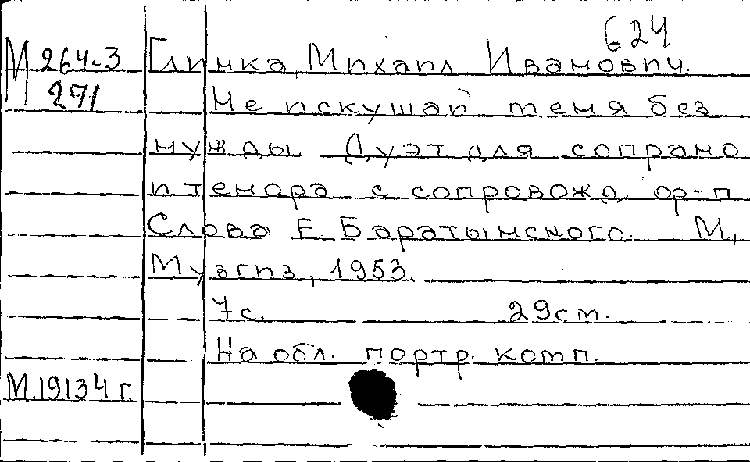 624
М 264-3
271
Глинка, Михаил Иванович.
Не искушай меня без
нужды. Дуэт для сопрано
и тенора с сопровожд. ор-п.
Слова Е. Баратынского. М.,
Музгиз, 1953.
7с. 29см.
На обл. портр. комп.
М.19134 г.